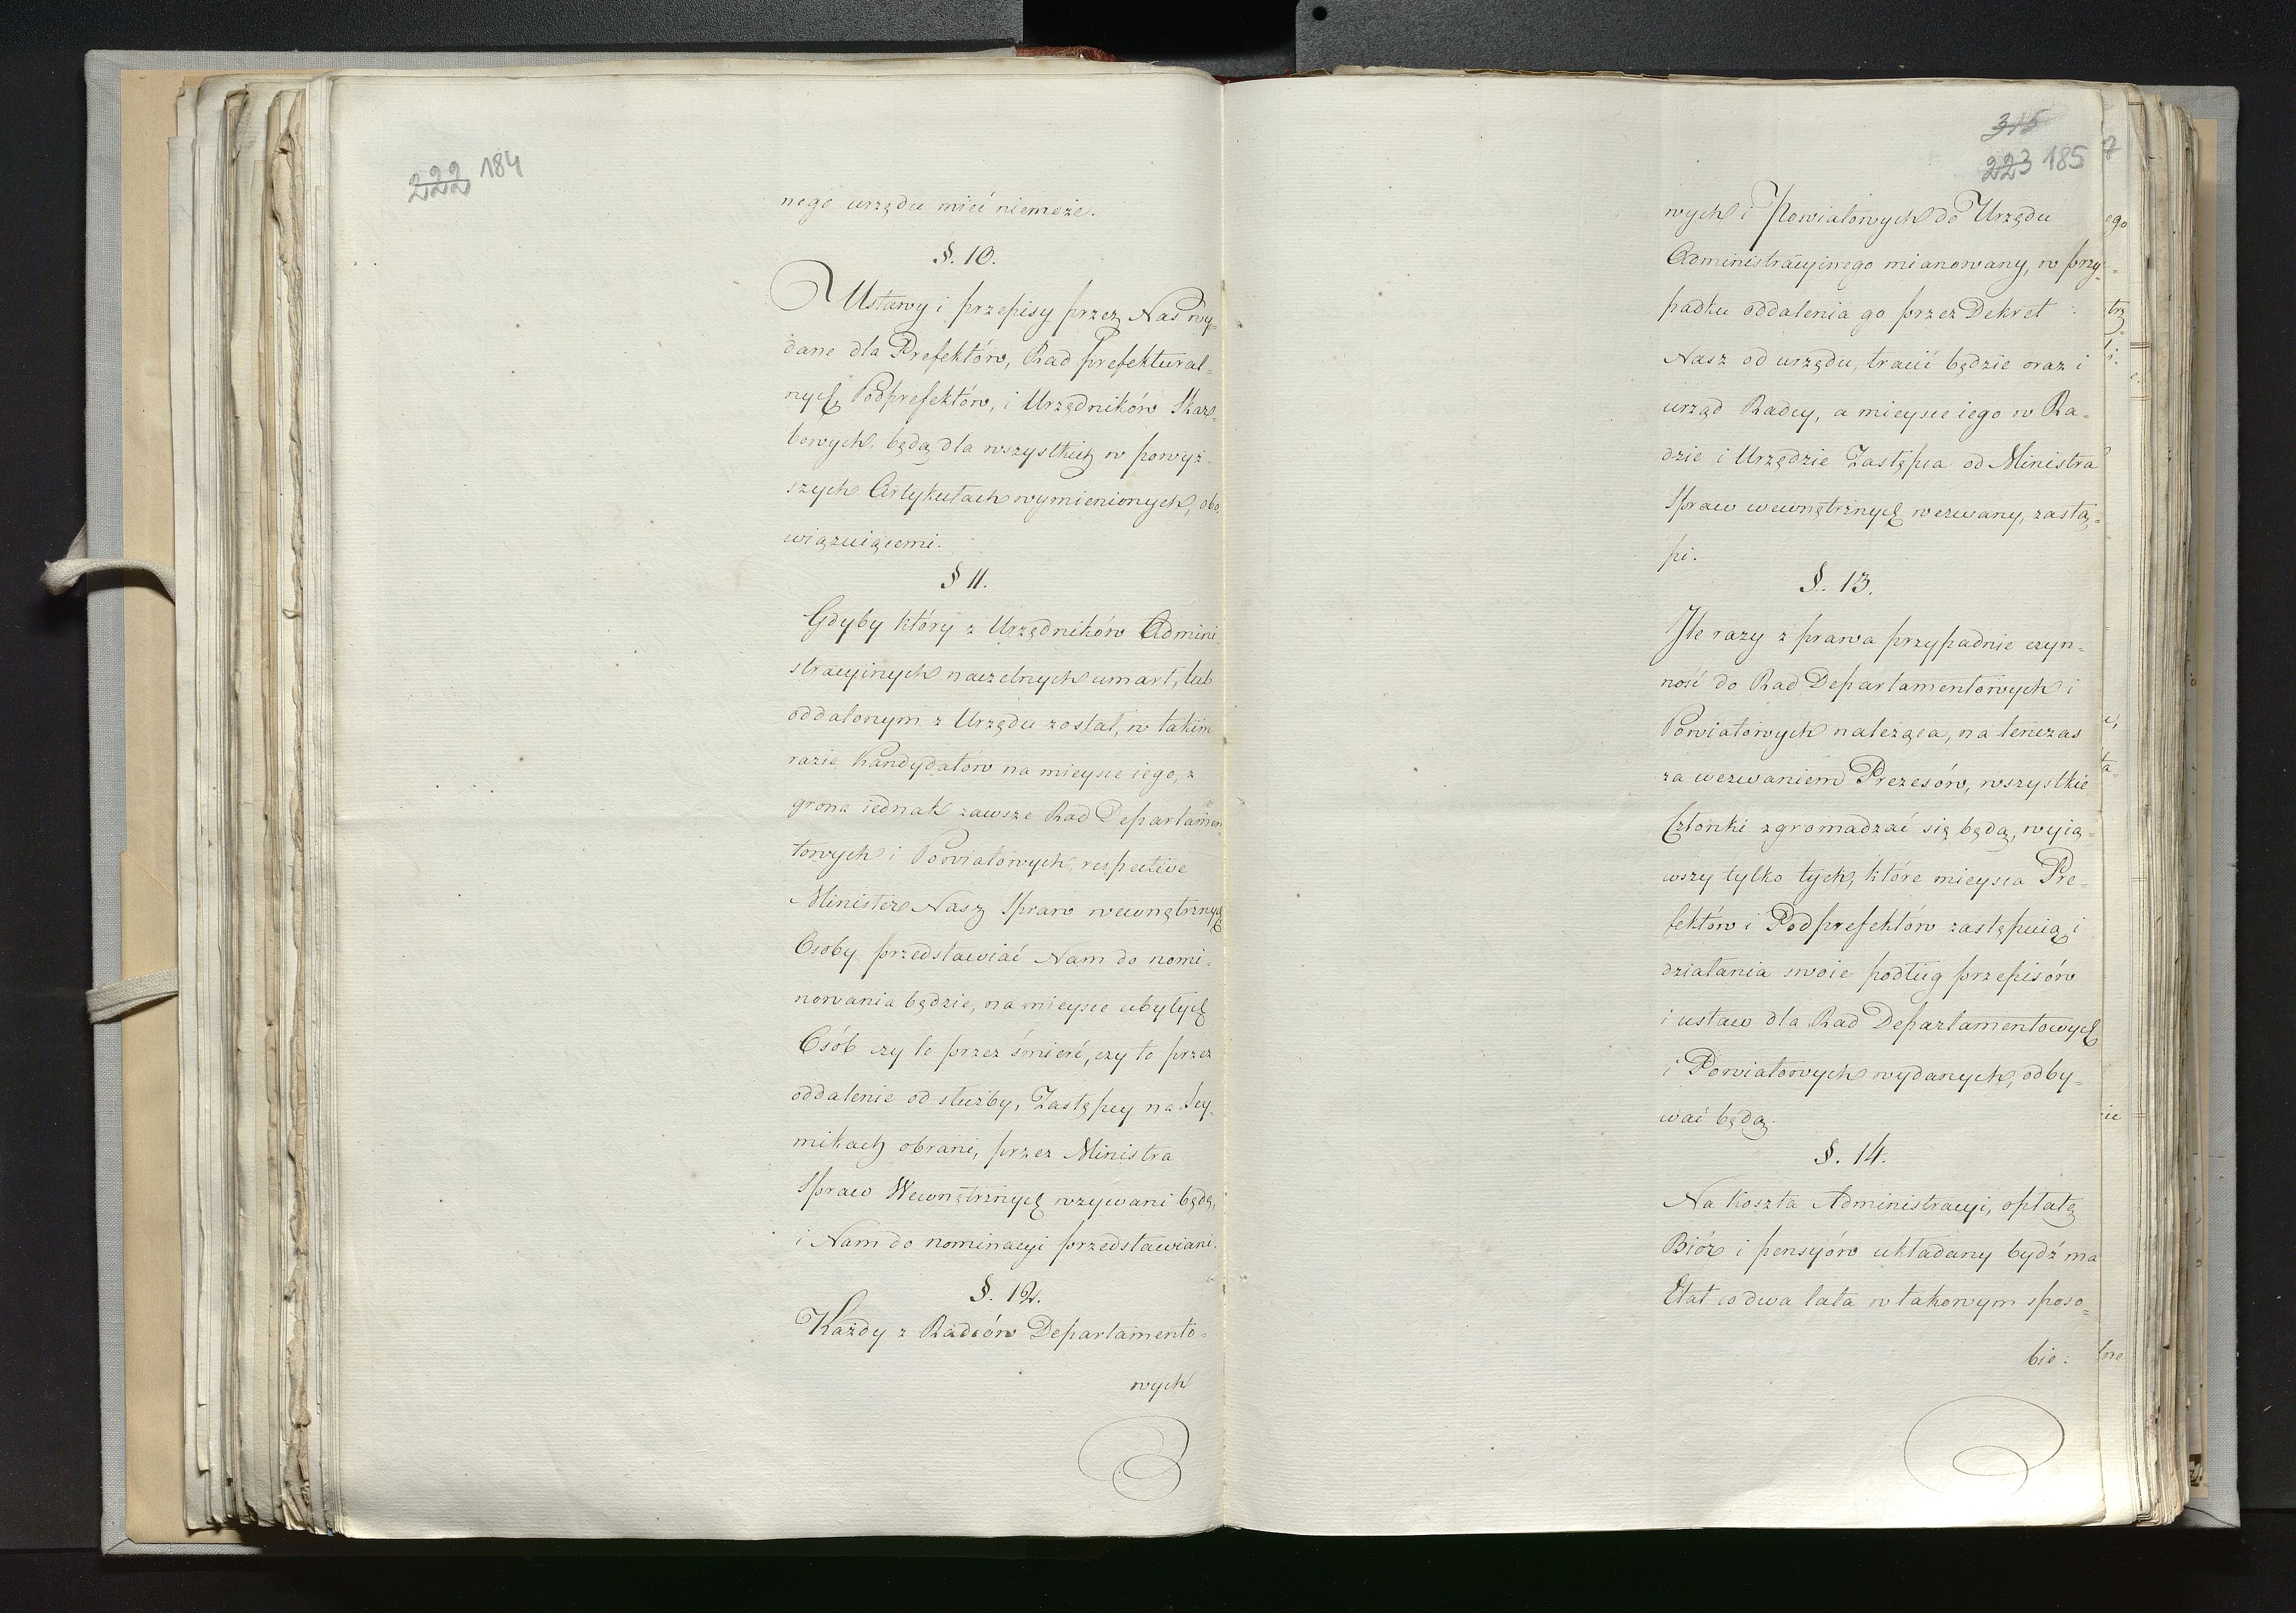 222 184
nego urzędu mieć niemoże.
§. 10.
Ustawy i przepisy przez Nas wy-
dane dla Prefektów, Rad prefektural-
nych, Podprefektów, i Urzędników Skar-
bowych, będą dla wszystkich w powyż-
szych Artykułach wymienionych, obo-
wiązuiącemi.
§ 11.
Gdyby który z Urzędników Admini-
stracyinych naczelnych umarł, lub
oddalonym z Urzędu został, w takim
razie Kandydatów na mieysce iego, z
grona iednak zawsze Rad Departamen-
towych i Powiatowych, respective
Minister Nasz Spraw wewnętrznych
Osoby przedstawiać Nam do nomi-
nowania będzie, na mieysce ubytych
Osób czy to przez śmierć, czy to przez
oddalenie od służby, Zastępcy na Sey-
mikach obrani, przez Ministra
Spraw Wewnętrznych wzywani będą,
i Nam do nominacyi przedstawiani.
§. 12.
Każdy z Radców Departamento-
wych
315
223 185
wych i Powiatowych do Urzędu
Administracyinego mianowany, w przy-
padku oddalenia go przez Dekret
Nasz od urzędu, tracić będzie oraz i
urząd Radcy, a mieysce iego w Ra-
dzie i Urzędzie Zastępca od Ministra
Spraw wewnętrznych wezwany, zastą-
pi.
§. 13.
Ile razy z prawa przypadnie czyn-
ność do Rad Departamentowych i
Powiatowych należąca, na tenczas
za wezwaniem Prezesów, wszystkie
Członki zgromadzać się będą, wyią-
wszy tylko tych, które mieysca Pre-
fektów i Podprefektów zastępuią i
działania swoie podług przepisów
i ustaw dla Rad Departamentowych
i Powiatowych wydanych, odby-
wać będą.
§. 14.
Na koszta Administracyi, opłatę
Biór i pensyów układany bydź ma
Etat co dwa lata w takowym sposo-
bie: